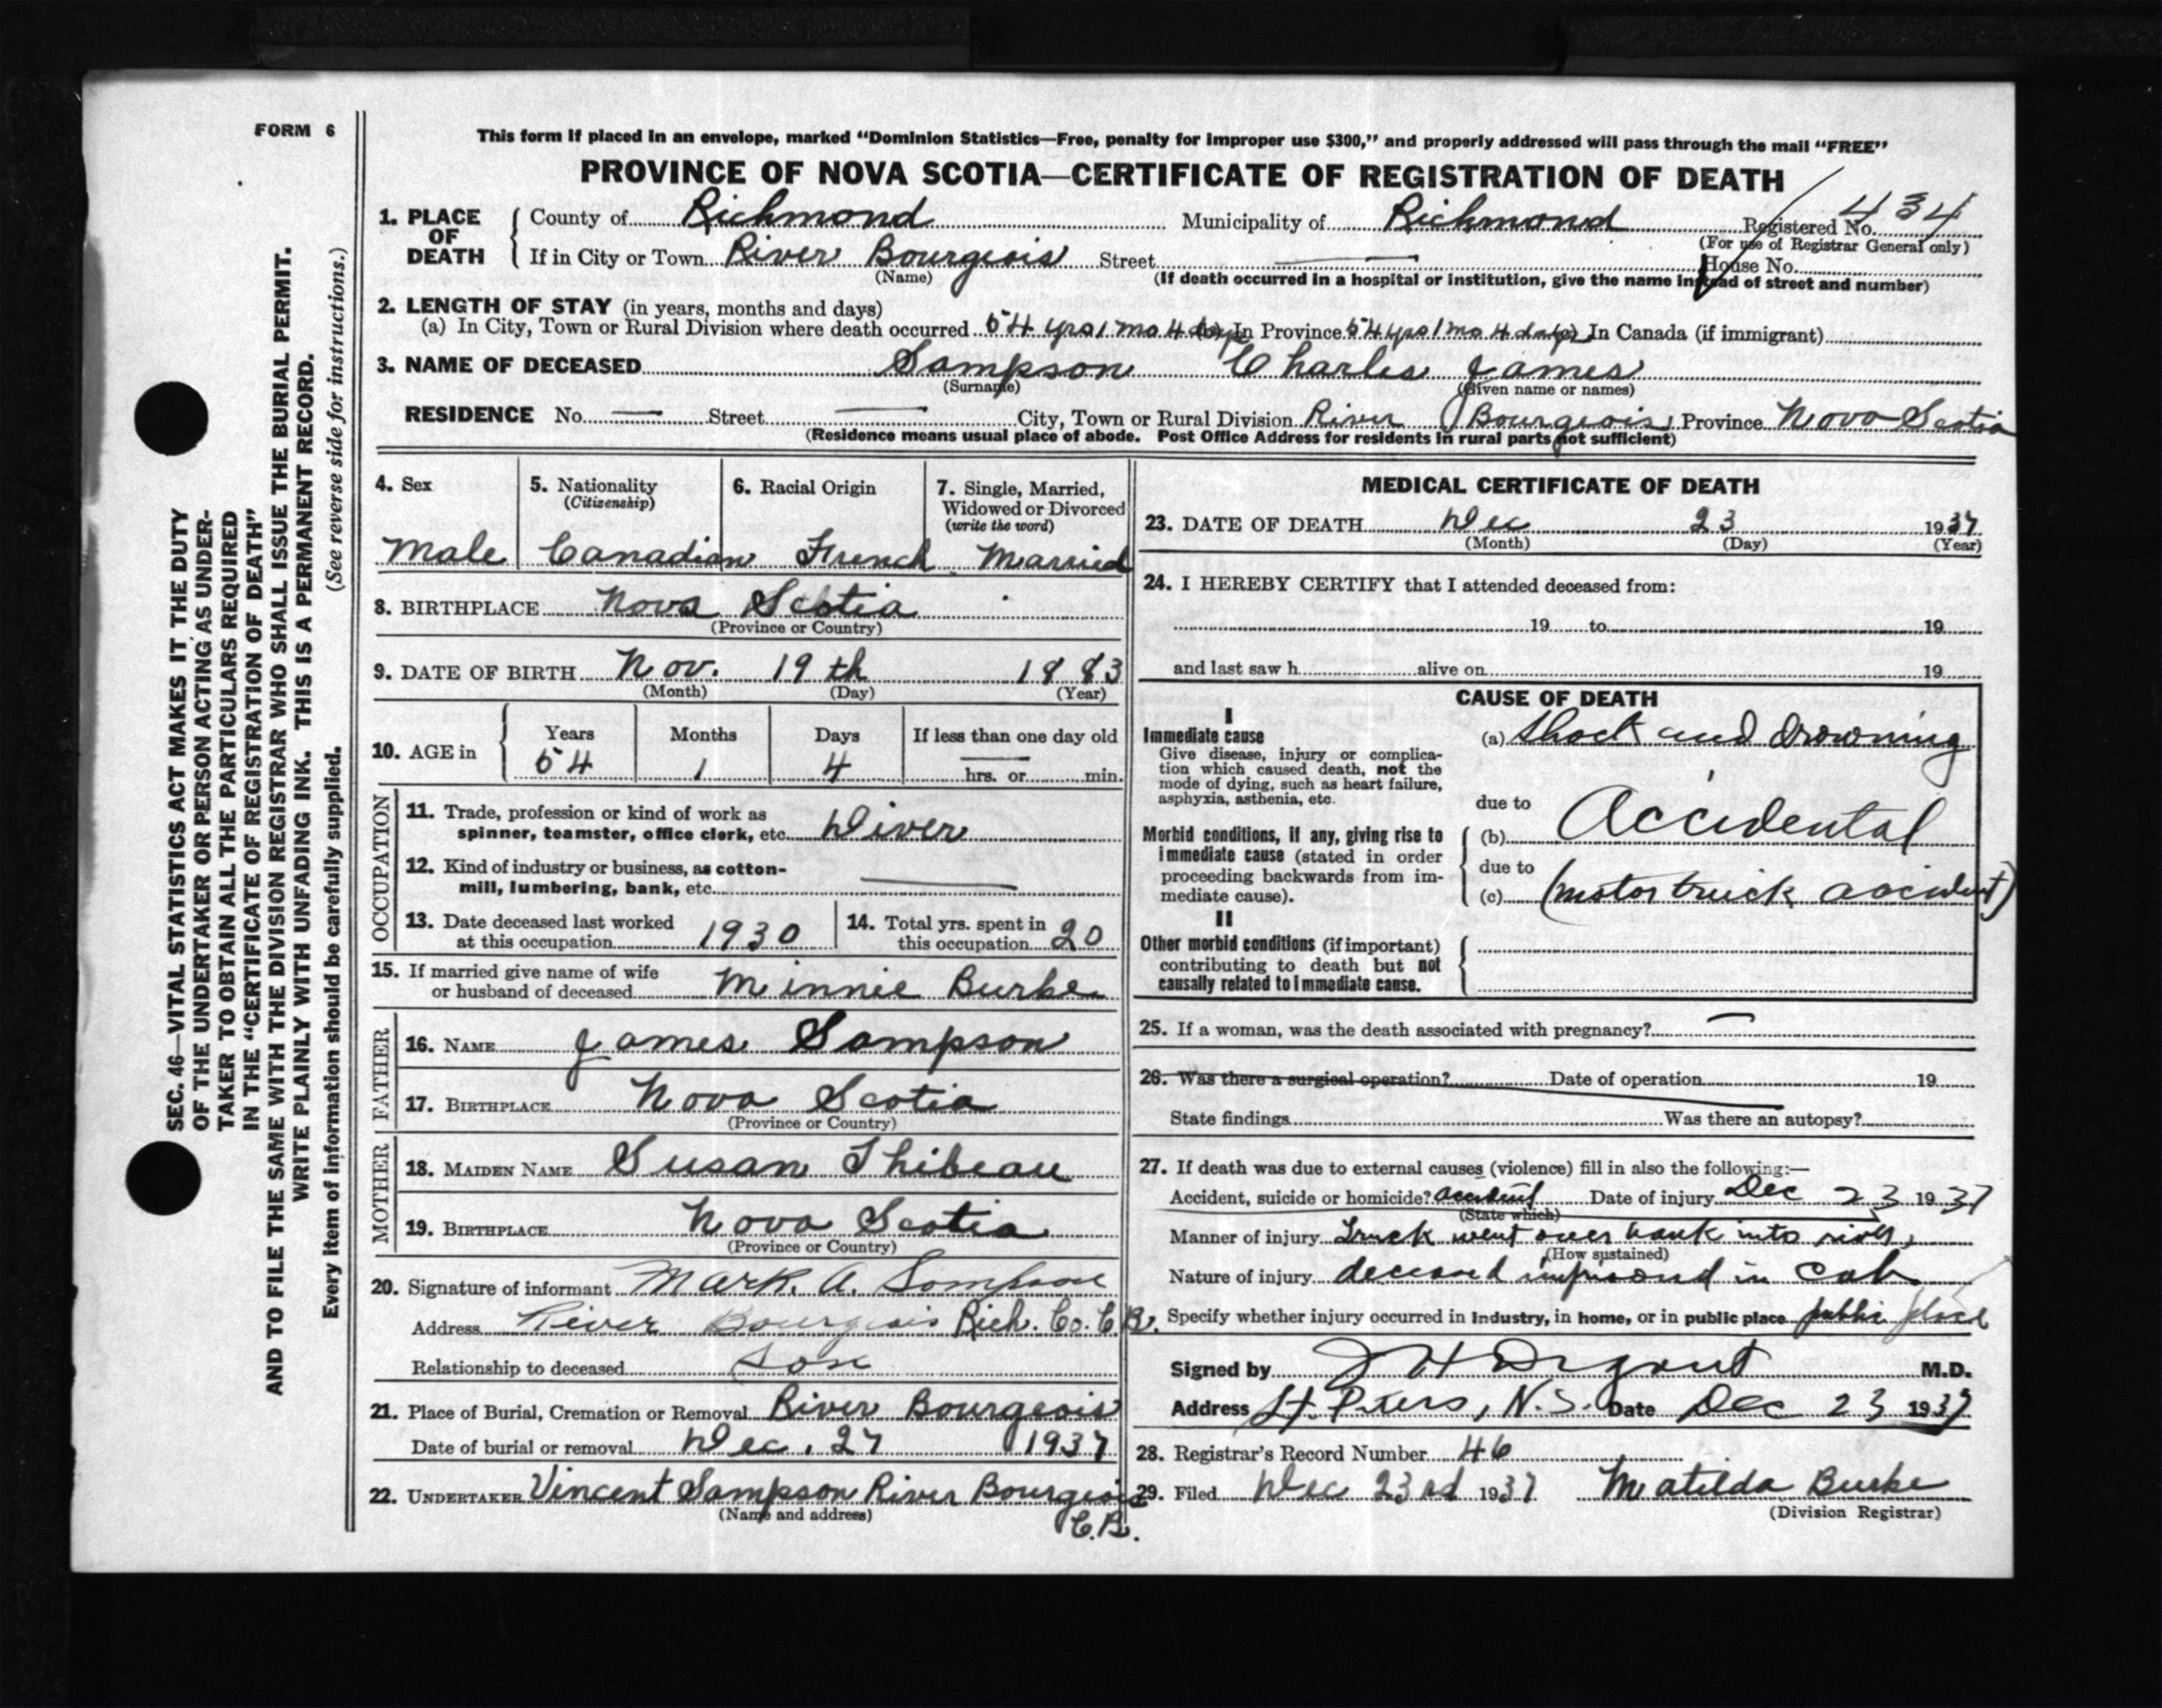 FORM 6
This form if placed in an envelope, marked "Dominion Statistics—Free, penalty for improper use $300," and properly addressed will pass through the mail "FREE"
PROVINCE OF NOVA SCOTIA—CERTIFICATE OF REGISTRATION OF DEATH
1. PLACE OF DEATH County of Richmond Municipality of Richmond Registered No. 434
(For use of Registrar General only)
If in City or Town River Bourgeois Street — House No.
(Name) (If death occurred in a hospital or institution, give the name instead of street and number)
2. LENGTH OF STAY (in years, months and days)
(a) In City, Town or Rural Division where death occurred 54 yrs 1 mo 4 days (b) In Province 54 yrs 1 mo 4 days (c) In Canada (if immigrant)
3. NAME OF DECEASED Sampson Charles James
(Surname) (Given name or names)
RESIDENCE No. — Street — City, Town or Rural Division River Bourgeois Province Nova Scotia
(Residence means usual place of abode. Post Office Address for residents in rural parts not sufficient)
4. Sex 5. Nationality (Citizenship) 6. Racial Origin 7. Single, Married, Widowed or Divorced (write the word)
Male Canadian French Married
8. BIRTHPLACE Nova Scotia
(Province or Country)
9. DATE OF BIRTH Nov. 19th 1883
(Month) (Day) (Year)
10. AGE in Years Months Days If less than one day old
54 1 4 — hrs. or min.
OCCUPATION
11. Trade, profession or kind of work as
spinner, teamster, office clerk, etc. Diver
12. Kind of industry or business, as cotton-
mill, lumbering, bank, etc. —
13. Date deceased last worked
at this occupation 1930
14. Total yrs. spent in
this occupation 20
15. If married give name of wife
or husband of deceased Minnie Burke
FATHER
16. NAME James Sampson
17. BIRTHPLACE Nova Scotia
(Province or Country)
MOTHER
18. MAIDEN NAME Susan Thibeau
19. BIRTHPLACE Nova Scotia
(Province or Country)
20. Signature of informant Mark. A. Sampson
Address River Bourgeois Rich. Co. C.B.
Relationship to deceased son
21. Place of Burial, Cremation or Removal River Bourgeois
Date of burial or removal Dec. 27 1937
22. UNDERTAKER Vincent Sampson River Bourgeois
(Name and address) C.B.
MEDICAL CERTIFICATE OF DEATH
23. DATE OF DEATH Dec 23 1937
(Month) (Day) (Year)
24. I HEREBY CERTIFY that I attended deceased from:
19 to 19
and last saw h alive on 19
CAUSE OF DEATH
I
Immediate cause
Give disease, injury or complica-
tion which caused death, not the
mode of dying, such as heart failure,
asphyxia, asthenia, etc.
(a) Shock and drowning
due to
Morbid conditions, if any, giving rise to
immediate cause (stated in order
proceeding backwards from im-
mediate cause).
(b) Accidental
due to
(c) (motor truck accident)
II
Other morbid conditions (if important)
contributing to death but not
causally related to immediate cause.
25. If a woman, was the death associated with pregnancy? —
26. Was there a surgical operation? Date of operation 19
State findings Was there an autopsy?
27. If death was due to external causes (violence) fill in also the following:—
Accident, suicide or homicide? accident Date of injury Dec 23 1937
(State which)
Manner of injury Truck went over bank into river,
(How sustained)
Nature of injury deceased imprisoned in cab
Specify whether injury occurred in industry, in home, or in public place public place
Signed by M.D.
Address St. Peters, N.S. Date Dec 23 1937
28. Registrar's Record Number 46
29. Filed Dec 23rd 1937 Matilda Burke
(Division Registrar)
SEC. 46—VITAL STATISTICS ACT MAKES IT THE DUTY
OF THE UNDERTAKER OR PERSON ACTING AS UNDER-
TAKER TO OBTAIN ALL THE PARTICULARS REQUIRED
IN THE "CERTIFICATE OF REGISTRATION OF DEATH"
AND TO FILE THE SAME WITH THE DIVISION REGISTRAR WHO SHALL ISSUE THE BURIAL PERMIT.
WRITE PLAINLY WITH UNFADING INK. THIS IS A PERMANENT RECORD.
Every item of information should be carefully supplied. (See reverse side for instructions.)